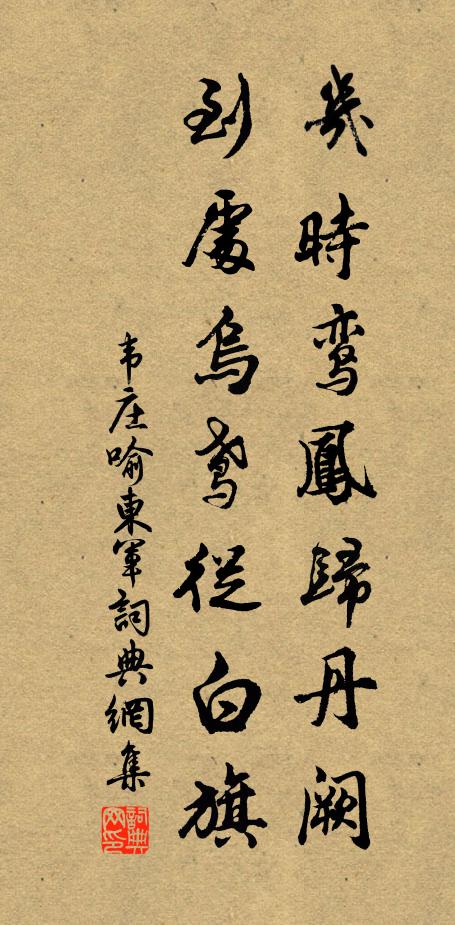 幾時鸾鳳歸丹闕
到處烏鳶從白旗
韦庄喻東軍詞典網集
詞典网印